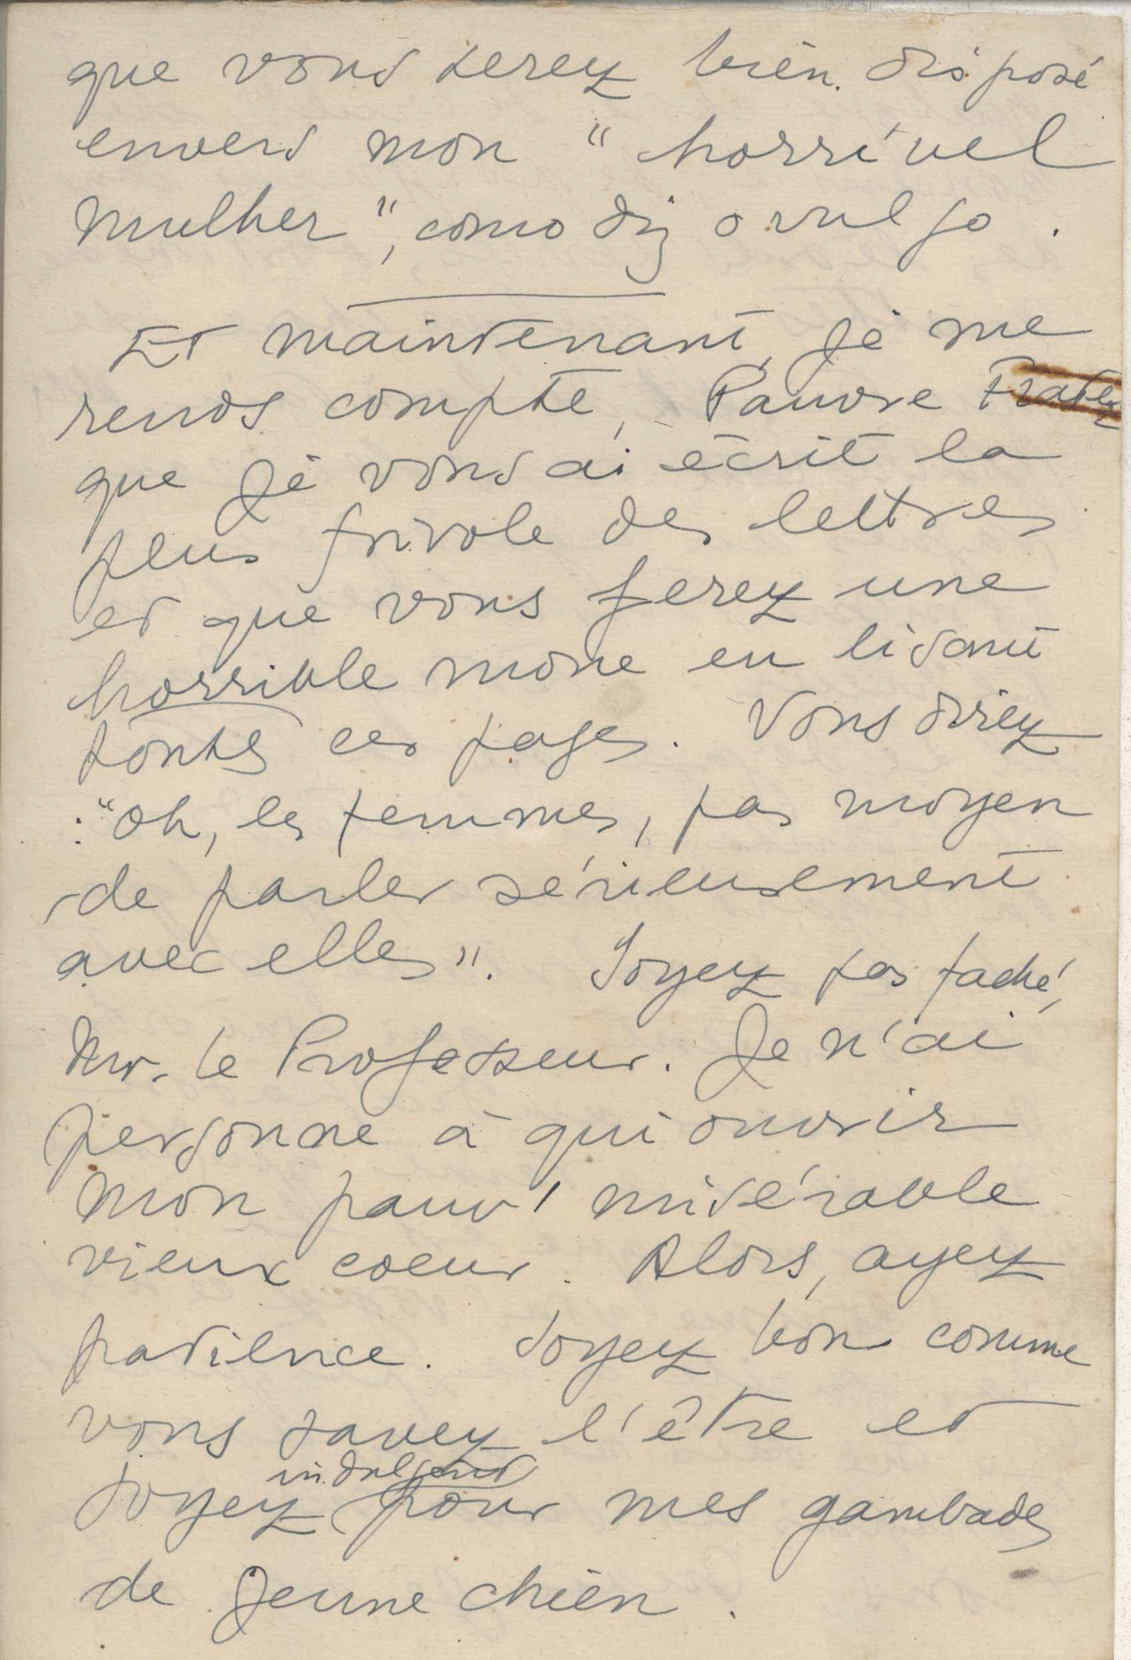 que vous serez bien disposé
envers mon " horrível
mulher", como diz o vulgo .
Et maintenant, je me
rends compte, Pauvre
que je vous ai écrit la
plus frivole des lettres
et que vous ferez une
horrible moue en lisant
toutes ces pages. Vous direz
: "Oh, les femmes, pas moyen
de parler sérieusement
avec elles". Soyez pas faché,
Mr. le Professeur. Je n'ai
personne à qui ouvrir
mon pauv' misérable
vieux coeur. Alors, ayez
patience. Soyez bon comme
vous savez l'être et
indulgent
soyez pour mes gambades
de jeune chien .